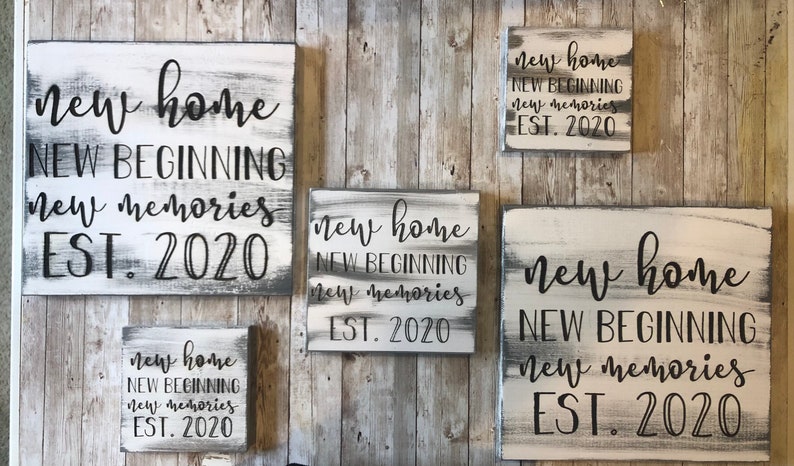 new home
NEW BEGINNING
new memories
EST. 2020
new home
NEW BEGINNING
new memories
EST. 2020
new home
NEW BEGINNING
new memories
EST. 2020
new home
NEW BEGINNING
new memories
EST. 2020
new home
NEW BEGINNING
new memories
EST. 2020